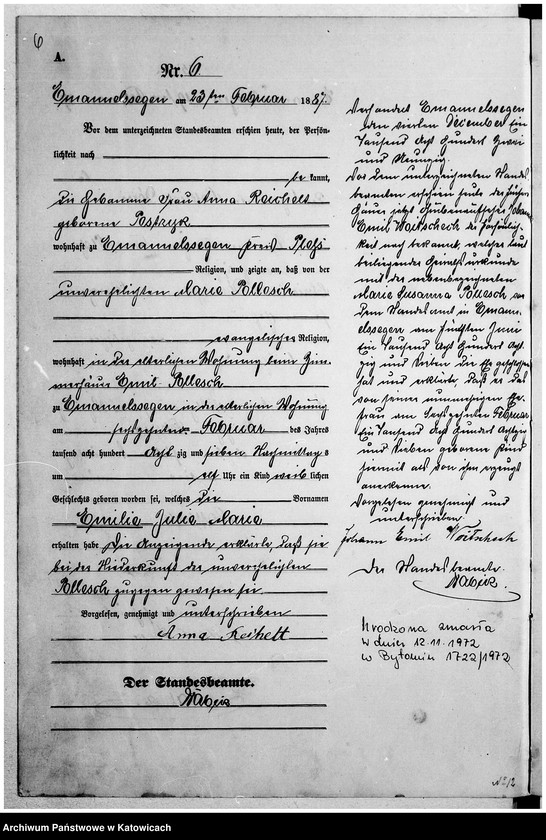 6
A.
Nr. 6
Emanuelssegen am 23ten Februar 1887.
Vor dem unterzeichneten Standesbeamten erschien heute, der Persön-
lichkeit nach
be kannt,
die Hebamme Frau Anna Reichelt
geborene
wohnhaft zu Emanuelssegen Kreis Pleß
Religion, und zeigte an, daß von der
unverehelichten Marie Pollesch
evangelischer Religion,
wohnhaft in der elterlichen Wohnung beim Zim-
merhäuer Emil Pollesch
zu Emanuelssegen in der elterlichen Wohnung
am sechszehnten Februar des Jahres
tausend acht hundert acht zig und sieben Nachmittags
um elf Uhr ein Kind weib lichen
Geschlechts geboren worden sei, welches die Vornamen
Emilie Julie Marie
erhalten habe. Die Anzeigende erklärte, daß sie
bei der Niederkunft der unverehelichten
Pollesch zugegen gewesen sei
Vorgelesen, genehmigt und unterschrieben
Anna Reichelt
Der Standesbeamte.
Verhandelt Emanuelssegen
den vierten December Ein
Tausend Acht Hundert Zwei
und Neunzig.
Vor dem unterzeichneten Standes
beamten erschien heute der frühere
Häuer jetzt Johann
Emil Woitscheck der Persönlich-
keit nach bekannt, welcher laut
beiliegender Heirathsurkunde
und der nebenbezeichneten
Marie Susanna Pollesch vor
dem Standesamt in Emanu-
elssegen am fünften Juni
Ein Tausend Acht Hundert Acht-
zig und Sieben die Ehe geschlossen
hat und erklärte, daß er das
von seiner nunmehrigen Ehe-
frau am sechszehnten Februar
Ein Tausend Acht Hundert Achtzig
und Sieben geborene Kind
hiermit als von ihm erzeugt
anerkenne.
Vorgelesen genehmigt und
unterschrieben
Johann Emil Woitscheck
Der Standesbeamte.
Urodzona zmarła
w dniu 12.11.1972
w Bytomiu 1722/1972
Nr 12
Archiwum Państwowe w Katowicach